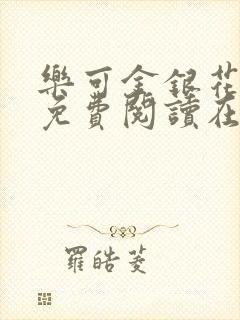 樂可金銀花
免費閱讀在
羅皓菱